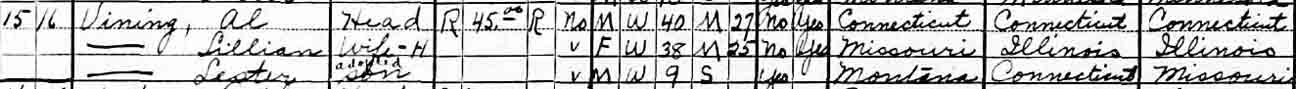 15 16 Vining, Al Head R 45.00 R No M W 40 M 27 No Yes Connecticut Connecticut Connecticut
— Lillian Wife-H v F W 38 M 25 No Yes Missouri Illinois Illinois
— Lester adopted son v M W 9 S Yes Montana Connecticut Missouri